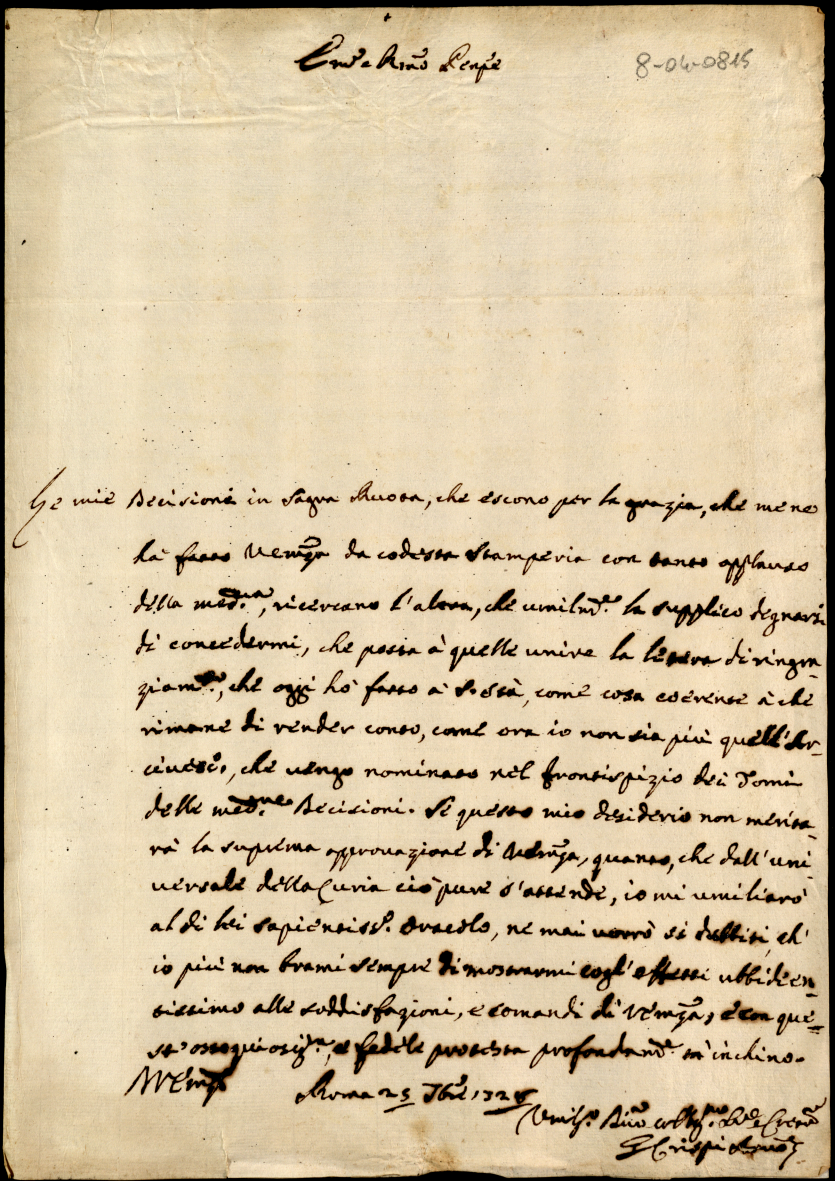 Em.o e R.mo Pençe
8-04-0815
Le mie Decisioni in Sagra Ruota, che escono per la grazia, che me ne
hà fatto Vem.za da codesta Stamperia con tanto applauso
della med.ma, ricercano l'altra, che umilm.te la supplico degnarsi
di concedermi, che possa à quelle unire la lettera di ringra=
ziam.to, che oggi hò fatto à S. Stà, come cosa coerente à che
rimane di render conto, come ora io non sia più quell'Ar=
cives.o, che vengo nominato nel frontispizio dei Tomi
delle med.me Decisioni. Se questo mio desiderio non merita=
rà la suprema approvazione di Vem.za, quanto, che dall'uni=
versale della Curia ciò pure s'attende, io mi umiliarò
al di lei sapientiss.o Oracolo, ne mai vorrò si dubbiti, ch'
io più non brami sempre dimostrarmi cogl'effetti ubbidien=
tissimo alle soddisfazioni, e comandi di Vem.za, e con que=
st'ossequiosiss.ma, e fedele protesta profondam.te m'inchino.
Roma 25
Crispi